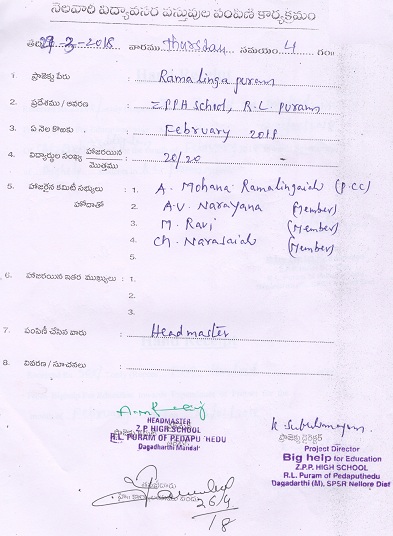 నెలవారి విద్యావసర వస్తువుల పంపిణి కార్యక్రమం
తేది 3-2018 వారము thursday సమయం 4 గం
1. ప్రాజెక్టు పేరు : Ramalinga puram
2. ప్రదేశము / ఆవరణ : Z.P.P.H School, R.L. Puram
3. ఏ నెల కొఱకు : February 2018
4. విద్యార్థుల సంఖ్య హాజరయిన / మొత్తము : 20/20
5. హాజరైన కమిటీ సభ్యులు : 1. A. Mohana Ramalingaiah (P.CC)
హోదాతో 2. A.V. Narayana (Member)
3. M. Ravi (Member)
4. Ch. Narasaiah (Member)
5.
6. హాజరయిన ఇతర ముఖ్యులు : 1.
2.
3.
7. పంపిణీ చేసిన వారు : Headmaster
8. వివరణ / సూచనలు :
HEADMASTER
Z.P. HIGH SCHOOL
R.L. PURAM OF PEDAPU HEDU
Dagadharthi Mandal
K. Subrahmanyam
ప్రాజెక్టు డైరెక్టర్
Project Director
Big help for Education
Z.P.P. HIGH SCHOOL
R.L. Puram of Pedaputhedu
Dagadarthi (M), SPSR Nellore Dist
26/4/18